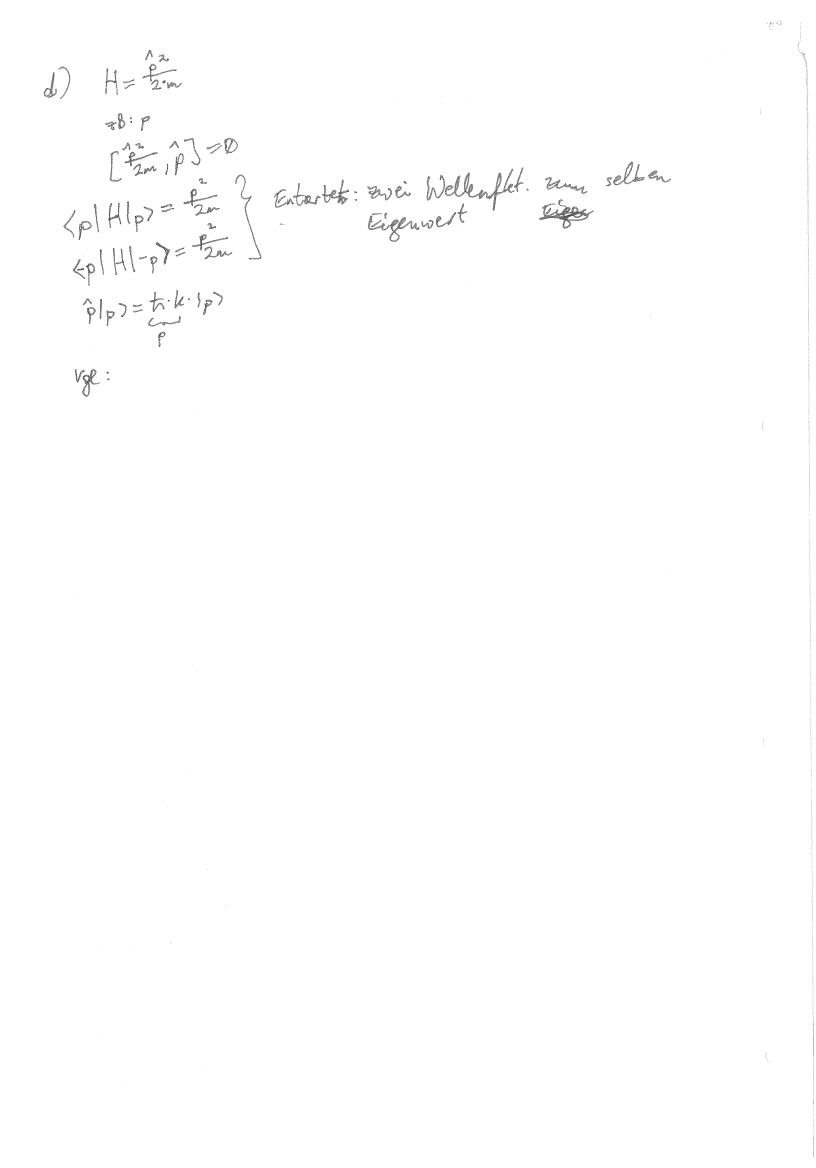 d) H = p̂²/2·m
zB: p
[p̂²/2m, p̂] = 0
⟨p|H|p⟩ = p²/2m
⟨-p|H|-p⟩ = p²/2m
} Entartet: zwei Wellenfkt. zum selben
Eigenwert
p̂|p⟩ = ħ·k·|p⟩
p
Vgl: